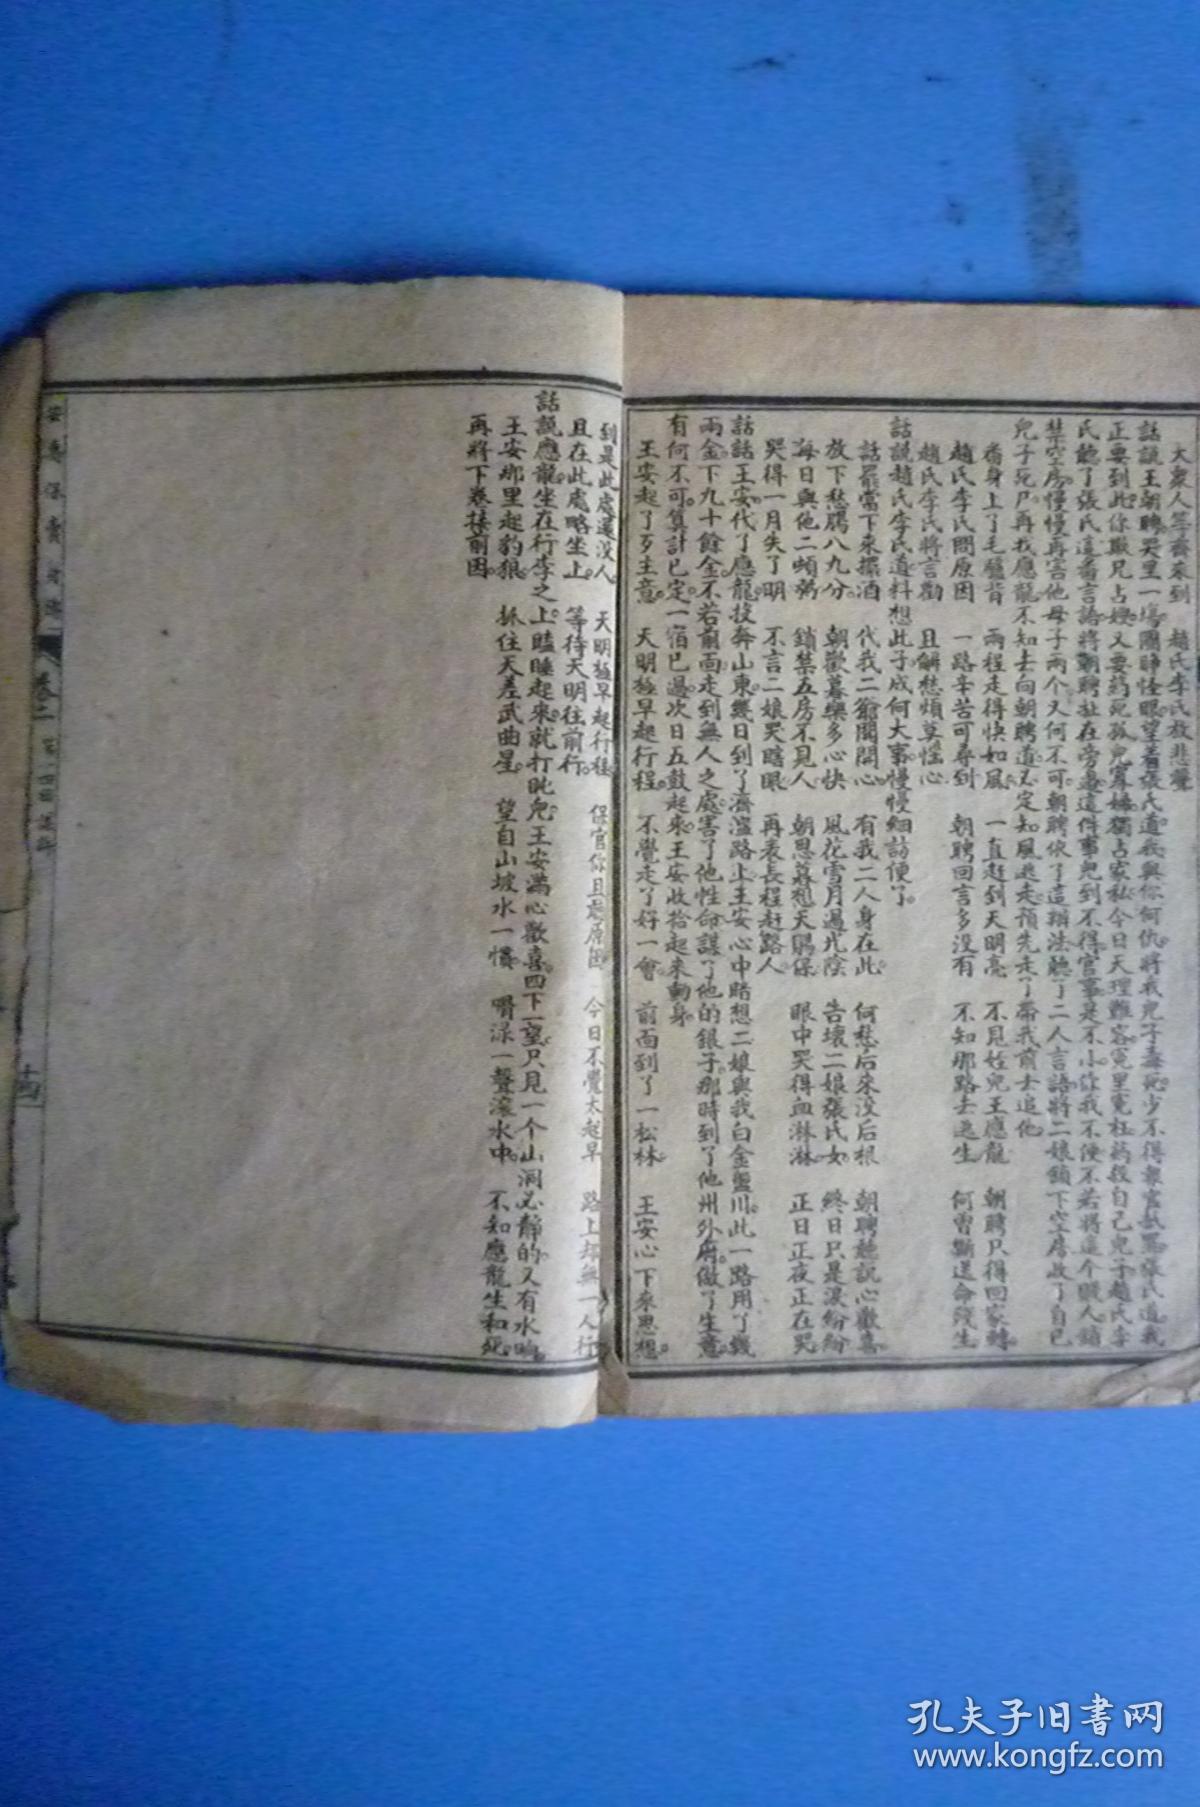 大衆人等齊來到 趙氏李氏放悲聲
話說王朝聘哭里一塲圓睁怪眼望着張氏道我與你何仇將我兒子毒死少不得報官張氏道我
正要到此你欺兄占嫂又要葯死孤兒寡婦獨占家私今日天理難容冤里冤枉葯殺自己兒子趙氏李
氏聽了張氏這番言語將朝聘扯在旁邊這件事兒到不得官事是不小你我不便不若將這个賤人鎖
禁空房慢慢再害他母子兩个又何不可朝聘依了這辦法聽了二人言語將二娘鎖下空房收了自己
兒子死尸再找應龍不知去向朝聘道必定知風逃走預先走了帶我前去追他
身上了毛驢背 兩程走得快如風 一直赶到天明亮 不見姪兒王應龍 朝聘只得回家轉
趙氏李氏問原因 一路辛苦可尋到 朝聘回言多沒有 不知那路去逃生 何曾斷送命殘生
趙氏李氏將言勸 且解愁煩草性心
話說趙氏李氏道料想此子成何大事慢慢細訪便了
話罷當下來擺酒 代我二爺開開心 有我二人身在此 何愁后來沒后根 朝聘聽說心歡喜
放下愁腸八九分 朝歡暮樂多心快 風花雪月過光陰 告壞二娘張氏女 終日只是淚紛紛
每日與他二頓粥 鎖禁五房不見人 朝思暮想天賜保 眼中哭得血淋淋 正日正夜正在哭
哭得一月失了明 不言二娘哭瞎眼 再表長程赶路人
話話王安代了應龍投奔山東幾日到了濟路上王安心中暗想二娘與我白金盤川此一路用了幾
兩金下九十餘金不若前面走到無人之處害了他性命謀了他的銀子那時到了他州外府做了生意
有何不可算計已定一宿已過次日五鼓起來王安收拾起來動身
王安起了歹主意 天明極早起行程 不覺走了好一會 前面到了一松林 王安心下來思想
到是此處還沒人 天明極早起行程 保官你且聽原因 今日不覺太起早 路上却無一人行
且在此處略坐上 等待天明往前行
話說應龍坐在行李之上瞌睡起來就打盹兒王安滿心歡喜四下一望只見一个山洞必静的又有水响
王安那里起豹狼 抓住天差武曲星 望自山坡水一慣 㗳涤一聲滾水中 不知應龍生和死
再將下卷接前因
卷二
十四
孔夫子旧書网
www.kongfz.com